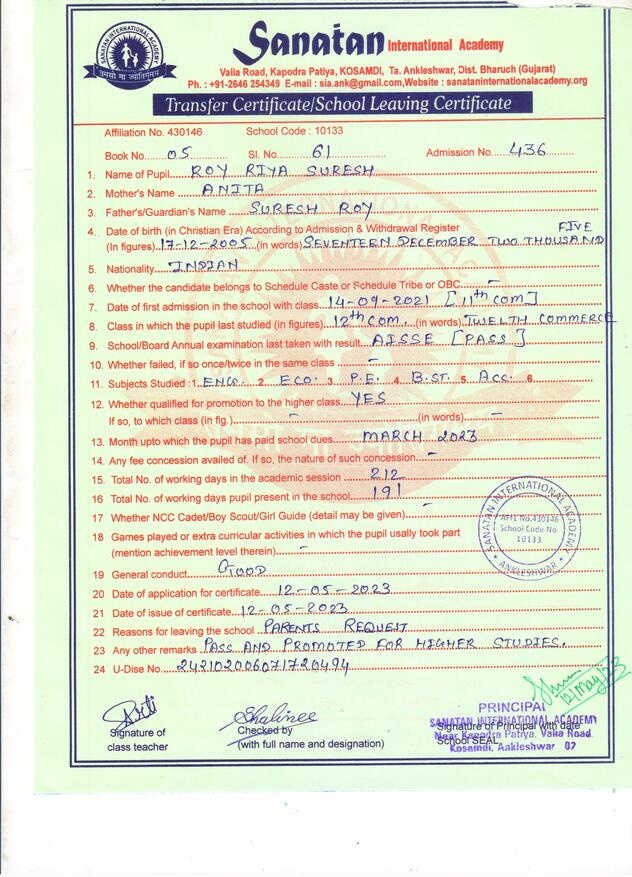 SANATAN INTERNATIONAL ACADEMY
तमसो मा ज्योतिर्गमय
Sanatan International Academy
Valia Road, Kapodra Patiya, KOSAMDI, Ta. Ankleshwar, Dist. Bharuch (Gujarat)
Ph. : +91-2646 254349 E-mail : sia.ank@gmail.com,Website : sanataninternationalacademy.org
Transfer Certificate/School Leaving Certificate
Affiliation No. 430146 School Code : 10133
Book No.....05 Sl. No......61 Admission No....436
1. Name of Pupil....ROY RIYA SURESH
2. Mother's Name....ANITA
3. Father's/Guardian's Name....SURESH ROY
4. Date of birth (in Christian Era) According to Admission & Withdrawal Register FIVE
(In figures)..17-12-2005..(in words) SEVENTEEN DECEMBER TWO THOUSAND
5. Nationality....INDIAN
6. Whether the candidate belongs to Schedule Caste or Schedule Tribe or OBC....–
7. Date of first admission in the school with class...14-09-2021 [11th COM]
8. Class in which the pupil last studied (in figures)..12th COM...(in words). TWELTH COMMERCE
9. School/Board Annual examination last taken with result...AISSE [PASS]
10. Whether failed, if so once/twice in the same class....–
11. Subjects Studied :1. ENG. 2. ECO. 3. P.E. 4. B.ST. 5. ACC. 6.
12. Whether qualified for promotion to the higher class...YES
If so, to which class (in fig.)....–....(in words)....–
13. Month upto which the pupil has paid school dues....MARCH 2023
14. Any fee concession availed of. If so, the nature of such concession....–
15. Total No. of working days in the academic session....212
16 Total No. of working days pupil present in the school....191
17 Whether NCC Cadet/Boy Scout/Girl Guide (detail may be given)....–
18 Games played or extra curricular activities in which the pupil usally took part
(mention achievement level therein)....–
SANATAN INTERNATIONAL ACADEMY
AFFL No.430146
School Code No.
10133
* ANKLESHWAR *
19 General conduct....GOOD
20 Date of application for certificate....12-05-2023
21 Date of issue of certificate...12-05-2023
22 Reasons for leaving the school..PARENTS REQUEST
23 Any other remarks PASS AND PROMOTED FOR HIGHER STUDIES.
24 U-Dise No...242102006071720494
12/May/23
Priti
Signature of
class teacher
Shalinee
Checked by
(with full name and designation)
PRINCIPAL
SANATAN INTERNATIONAL ACADEMY
Signature of Principal with date
Near Kapodra Patiya, Valia Road.
School SEAL
Kosamdi, Ankleshwar 02